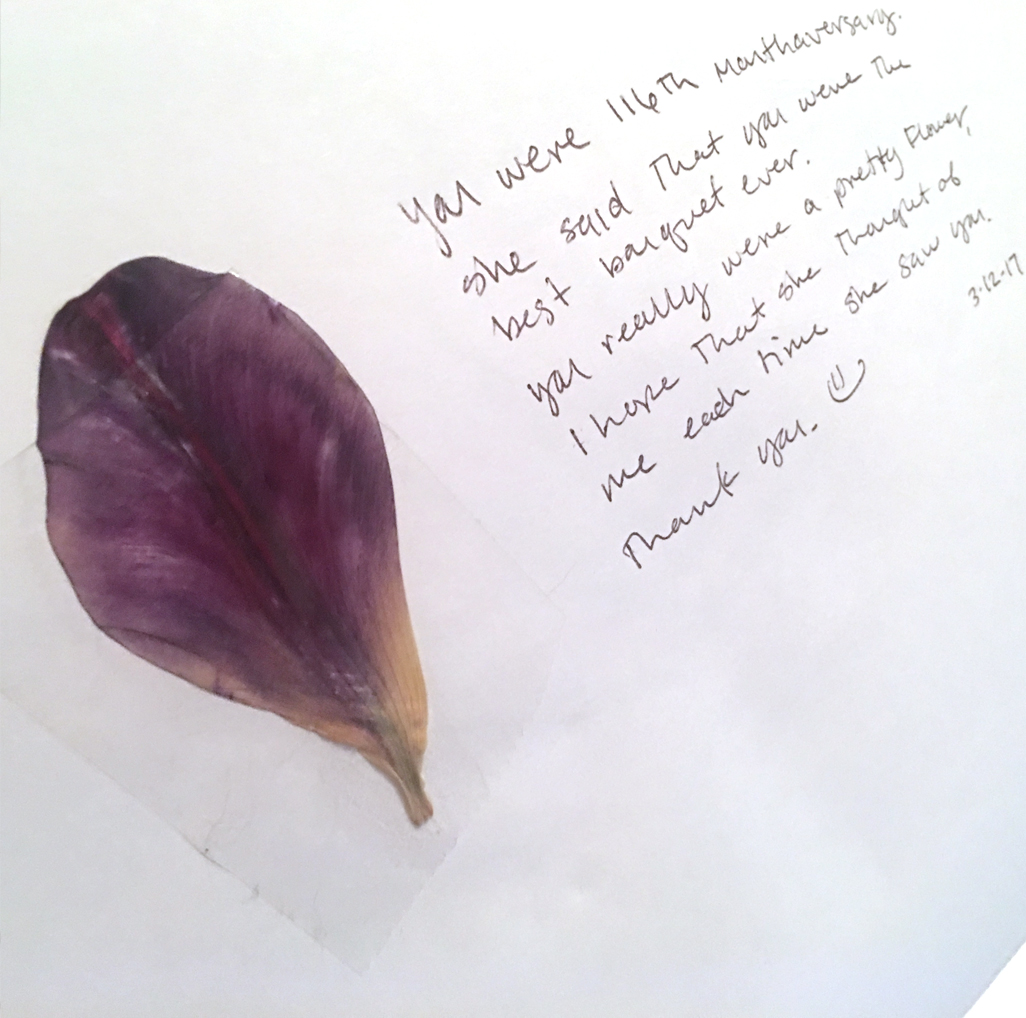 you were 116th Monthaversary.
she said That you were The
best bouquet ever.
you really were a pretty Flower,
I hope That she Thought of
me each time she saw you.
Thank you.
3.12.17